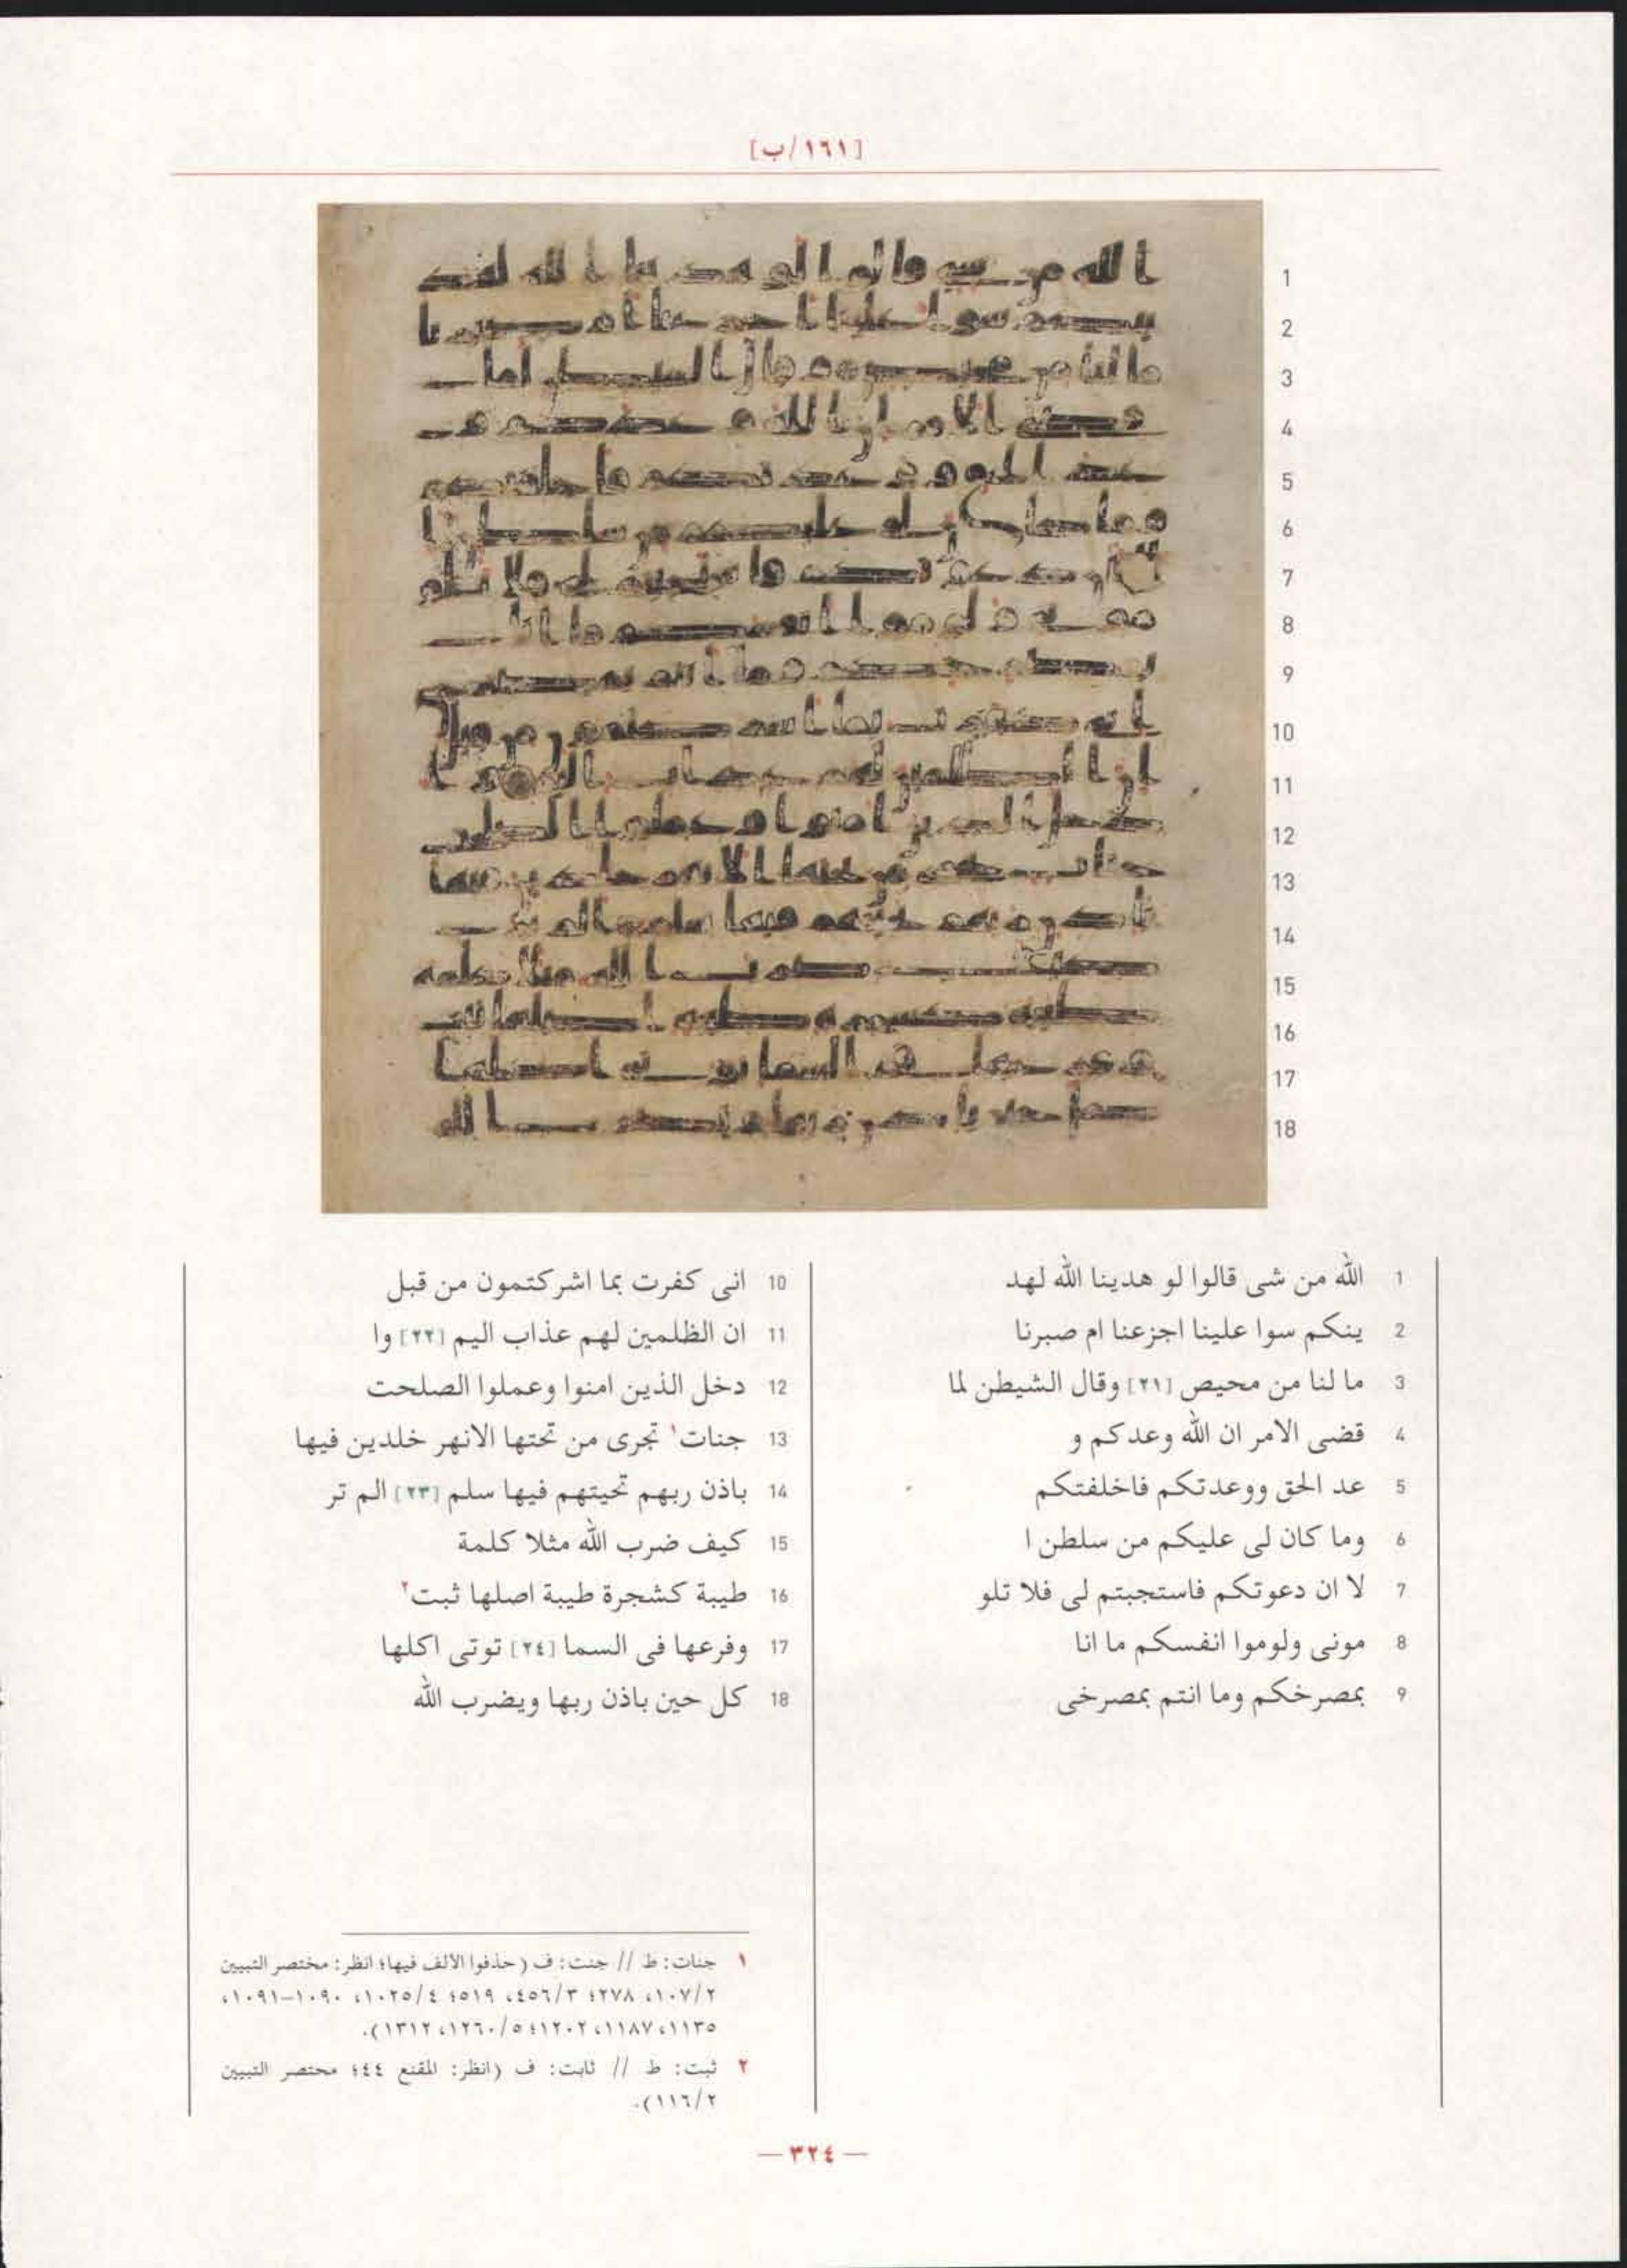 [١٦١/ب]
1
2
3
4
5
6
7
8
9
10
11
12
13
14
15
16
17
18
1 الله من شى قالوا لو هدينا الله لهد
2 ينكم سوا علينا اجزعنا ام صبرنا
3 ما لنا من محيص [٢١] وقال الشيطن لما
4 قضى الامر ان الله وعدكم و
5 عد الحق ووعدتكم فاخلفتكم
6 وما كان لى عليكم من سلطن ا
7 لا ان دعوتكم فاستجبتم لى فلا تلو
8 مونى ولوموا انفسكم ما انا
9 بمصرخكم وما انتم بمصرخى
10 انى كفرت بما اشركتمون من قبل
11 ان الظلمين لهم عذاب اليم [٢٢] وا
12 دخل الذين امنوا وعملوا الصلحت
13 جنات١ تجرى من تحتها الانهر خلدين فيها
14 باذن ربهم تحيتهم فيها سلم [٢٣] الم تر
15 كيف ضرب الله مثلا كلمة
16 طيبة كشجرة طيبة اصلها ثبت٢
17 وفرعها فى السما [٢٤] توتى اكلها
18 كل حين باذن ربها ويضرب الله
١ جنات: ط // جنت: ف (حذفوا الألف فيها؛ انظر: مختصر التبيين
١٠٧/٢، ٢٧٨؛ ٤٥٦/٣، ٥١٩؛ ١٠٢٥/٤، ١٠٩٠–١٠٩١،
١١٣٥، ١١٨٧، ١٢٠٢؛ ١٢٦٠/٥، ١٣١٢).
٢ ثبت: ط // ثابت: ف (انظر: المقنع ٤٤؛ محتصر التبيين
١١٦/٢).
— ٣٢٤ —